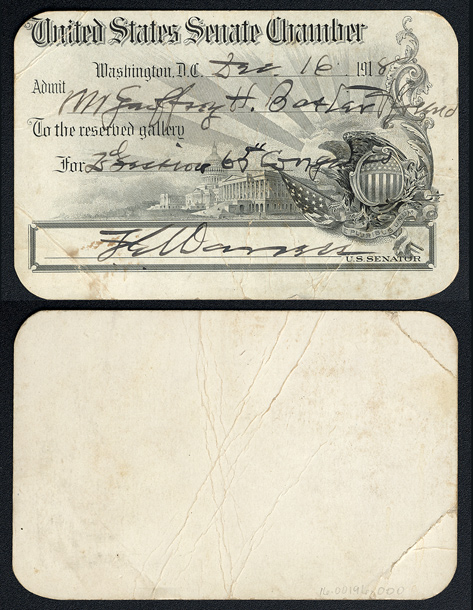 United States Senate Chamber
Washington, D.C. Dec. 16 1918
Admit
Mr Godfrey H.
To the reserved gallery
For 3d Session 65th Congress
F E Warren
U.S. SENATOR